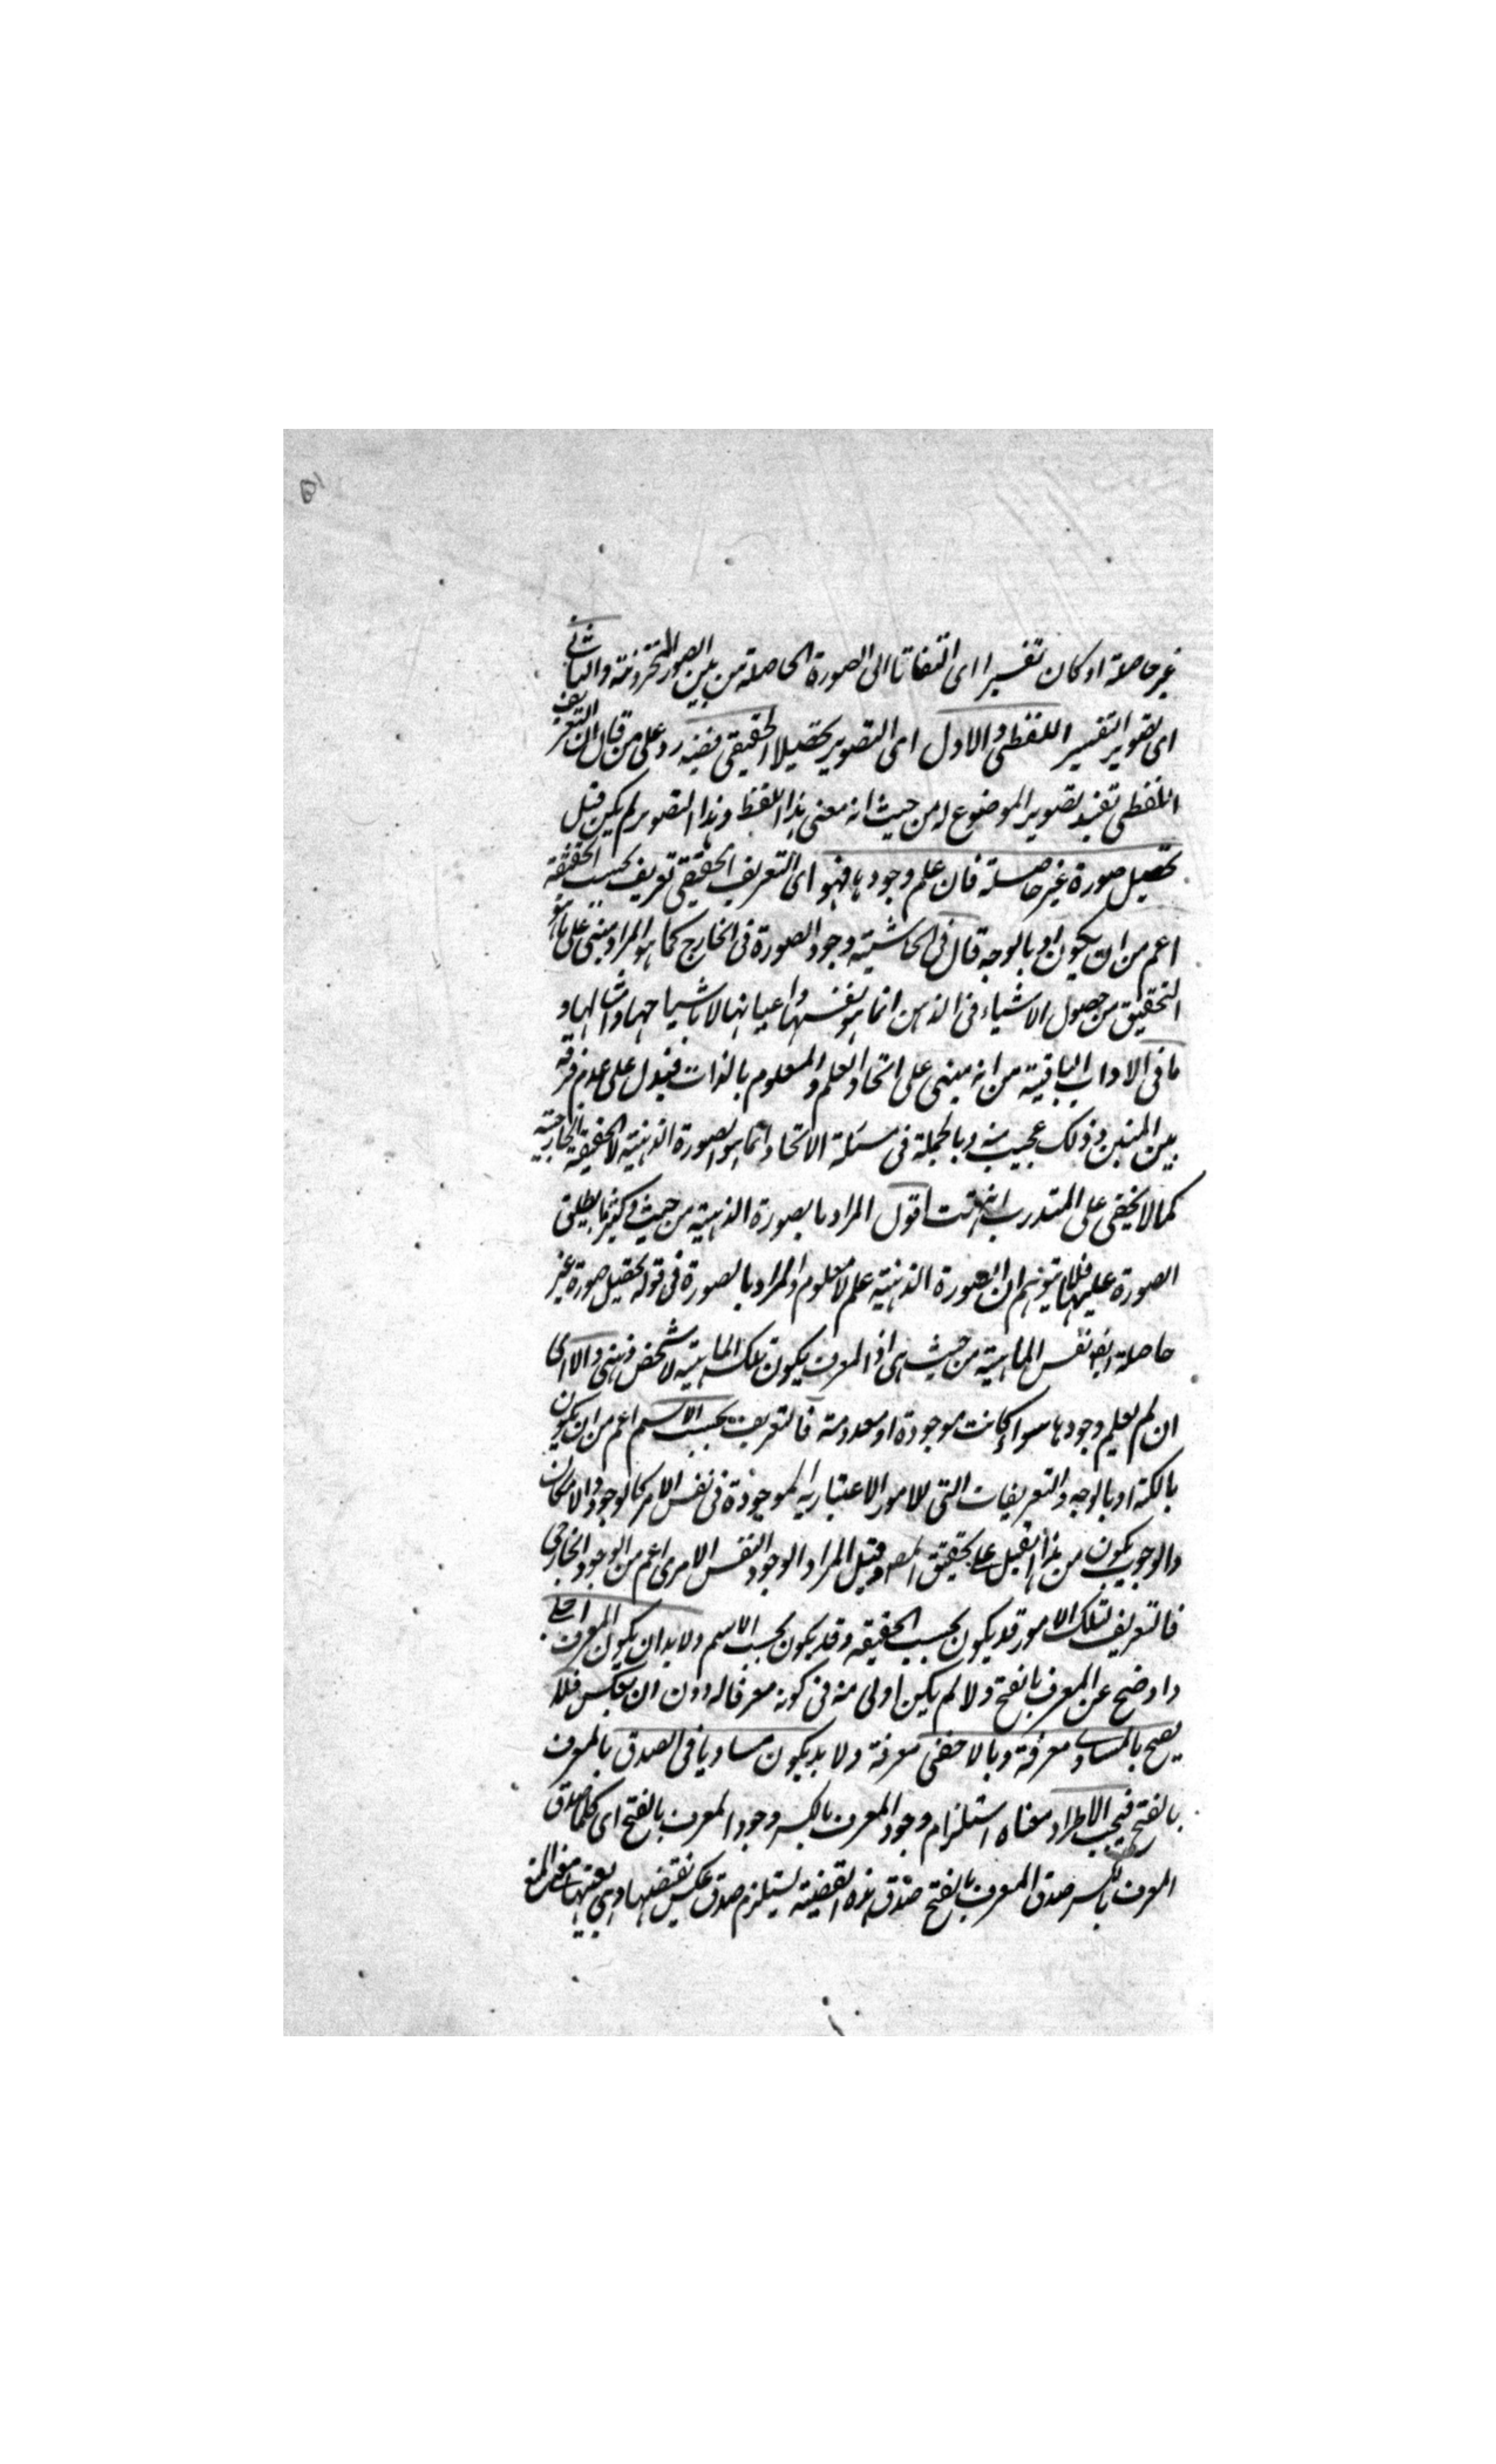 غير حاصلة او كان تفسيرا اى التفاتا الى الصورة الحاصلة من بين الصور المخزونة والثانى
اى تصوير التفسير اللفظى والاول اى التصوير تحصيلا الحقيقى ففيه رد على من قال ان التعريف
اللفظى تفيد تصوير الموضوع له من حيث انه معنى هذا اللفظ وهذا التصوير لم يكن قبل
تحصيل صورة غير حاصلة فان علم وجودها فهو اى التعريف الحقيقى تعريف بحسب الحقيقة
اعم من ان يكون او بالوجه قال فى الحاشية وجود الصورة فى الخارج كما هو المراد مبنى على ما هو
التحقيق من حصول الاشياء فى الذهن انما هو بانفسها واعيانها لا باشباحها وامثالها و
ما فى الاداب الباقية من انه مبنى على اتحاد العلم والمعلوم بالذات فيدل على عدم فرقه
بين وذلك عجيب منه وبالجملة فى مسئلة الاتحاد انما هو الصورة الذهنية لا الحقيقة الخارجية
كما لا يخفى على المتدرب انتهت اقول المراد بالصورة الذهنية من حيث هى كثيرا ما يطلق
الصورة عليها فلا يتوهم ان الصورة الذهنية علم لا معلوم والمراد بالصورة فى قوله تحصيل صورة غير
حاصلة ايضا نفس الماهية من حيث هى اذ المعرف يكون تلك الماهية لا شخص ذهنى والا اى
ان لم يعلم وجودها سواء كانت موجودة او معدومة فالتعريف بحسب الاسم اعم من ان يكون
بالكنه او بالوجه والتعريفات التى للامور الاعتبارية الموجودة فى نفس الامر كالوجود والامكان
والوجوب يكون من هذا القبيل على تحقيق المصـ وقيل المراد الوجود النفس الامرى اعم من الوجود الخارجى
فالتعريف لتلك الامور قد يكون بحسب الحقيقة وقد يكون بحسب الاسم ولا بد ان يكون المعرف اجلى
واوضح عن المعرف بالفتح ولا لم يكن اولى منه فى كونه معرفا له دون ان يعكس فلا
يصح بالمساوى معرفة وبالاخفى معرفة ولا بد يكون مساويا فى الصدق بالمعرف
بالفتح فيجب الاطراد معناه استلزام وجود المعرف بالكسر وجود المعرف بالفتح اى كلما صدق
المعرف بالكسر صدق المعرف بالفتح صدق هذه القضية يستلزم صدق عكس نقيضها وهى بعينها معنى المنع